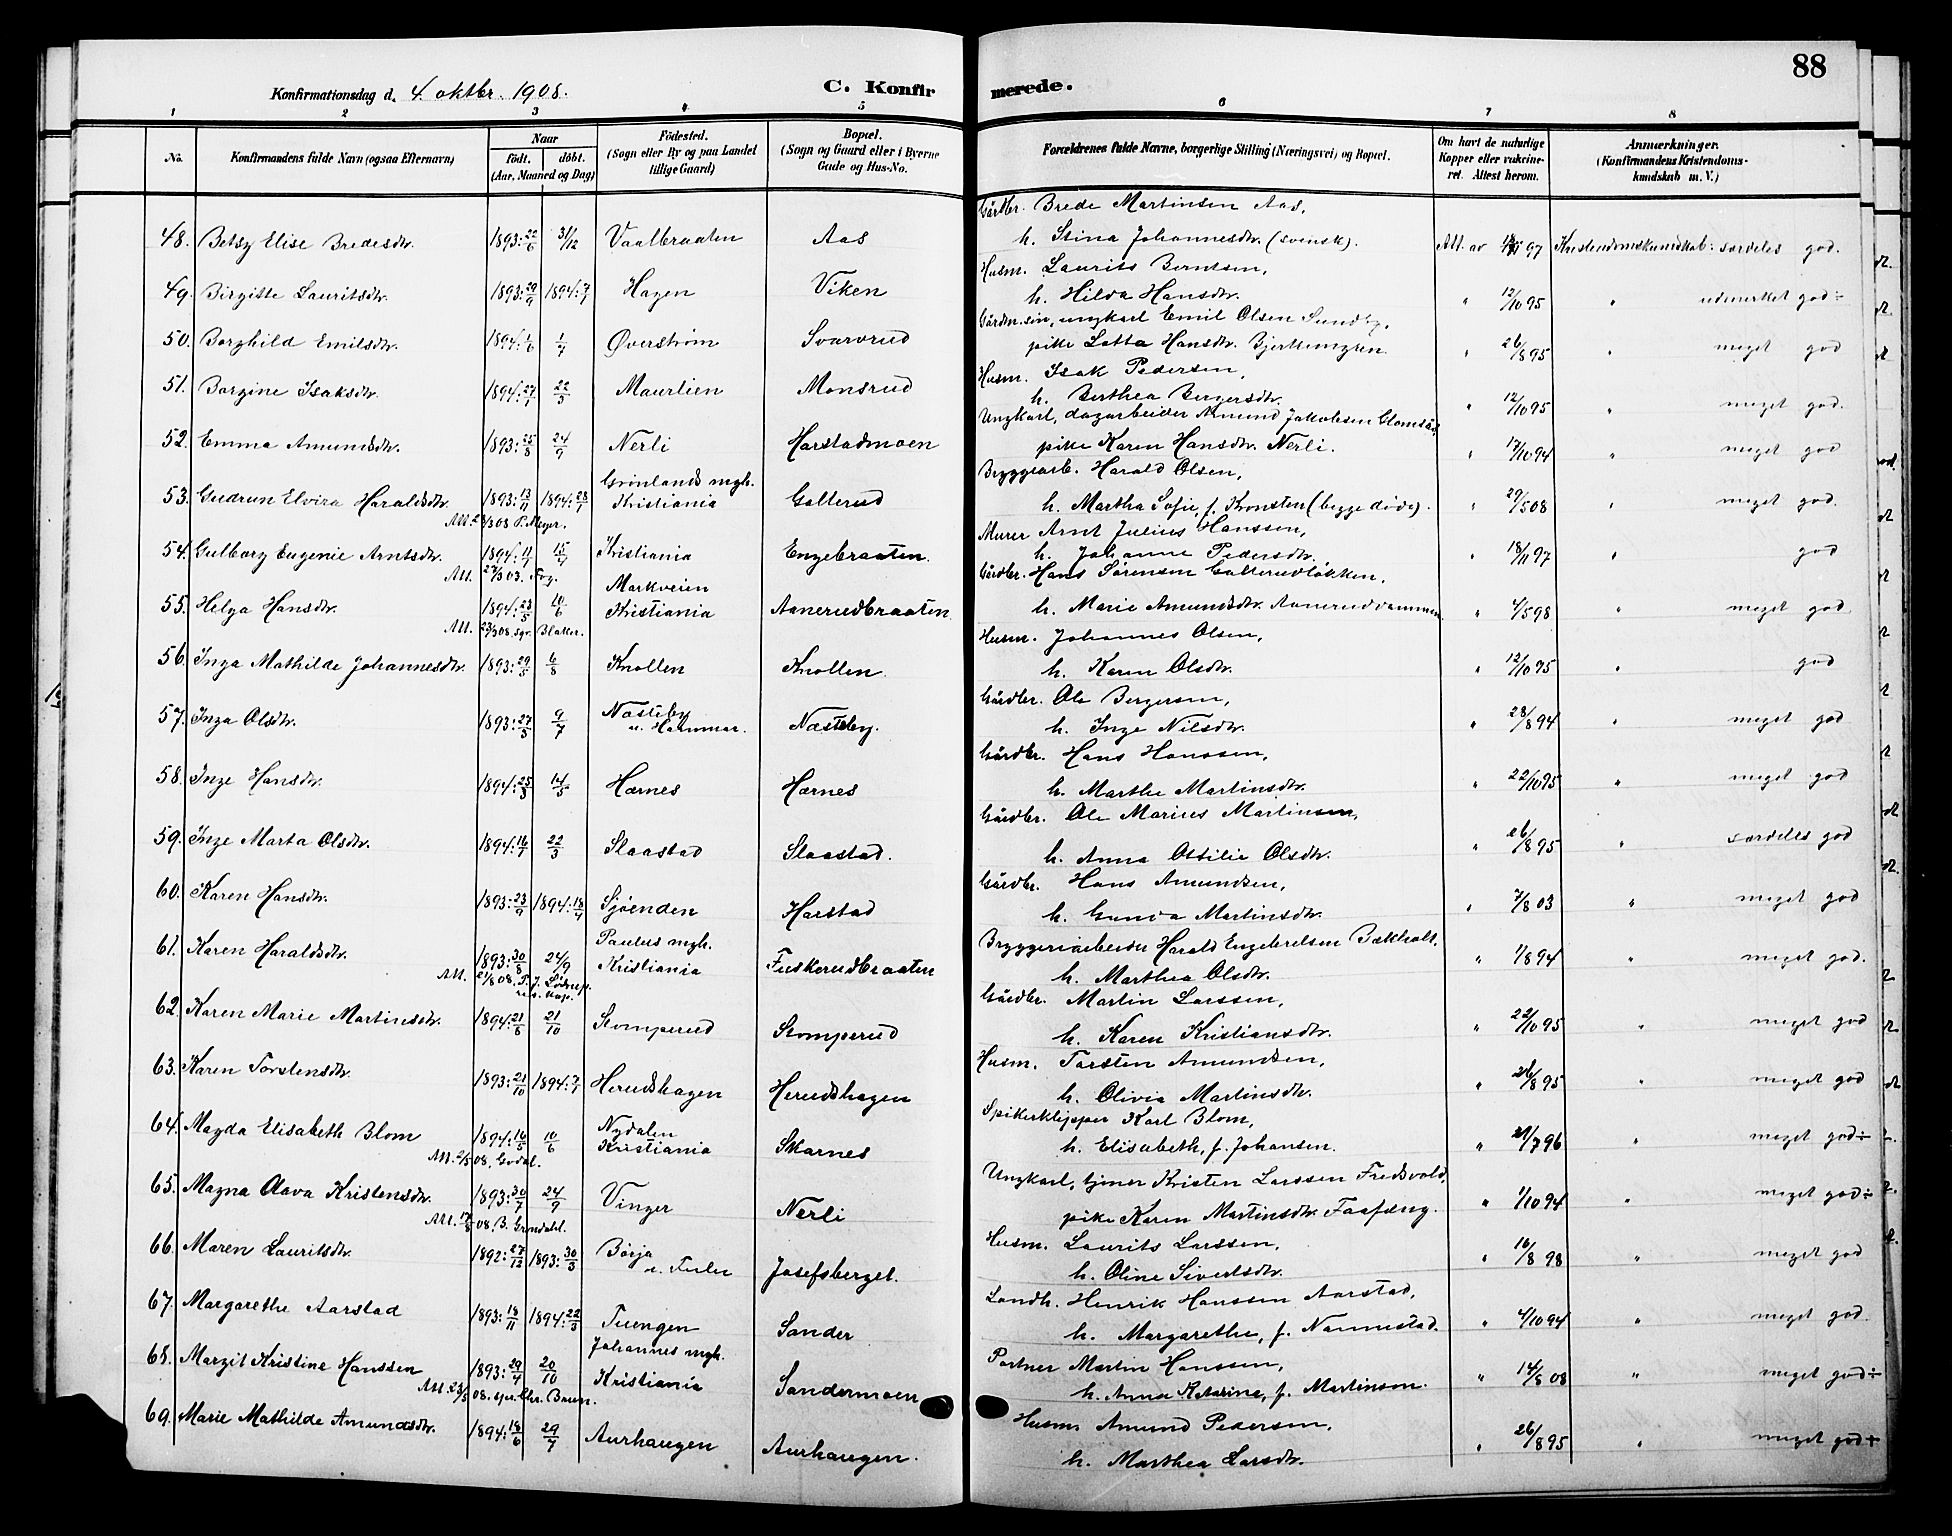 88
Konfirmationsdag d. 4. oktbr. 1908.
C. Konfirmerede.
1 2 3 4 5 6 7 8
No.
Konfirmandens fulde Navn (ogsaa Efternavn)
Naar
födt. döbt.
(Aar, Maaned og Dag)
Födested.
(Sogn eller By og paa Landet
tillige Gaard)
Bopæl.
(Sogn og Gaard eller i Byerne
Gade og Hus-No.
Forældrenes fulde Navne, borgerlige Stilling (Næringsvei) og Bopæl.
Om havt de naturlige
Kopper eller vaksine-
ret. Attest herom.
Anmærkninger.
(Konfirmandens Kristendoms-
kundskab m. V.)
Gårdbr. Brede Martinsen Aas,
48. Betsy Elise Bredesdtr. 1893: 22/6 31/12 Vaalbraaten Aas h. Stina Johannesdtr. (svensk). Att. av 97 Kristendomskundskab: særdeles god.
Husm. Laurits Berntsen,
49. Birgitte Lauritsdtr. 1893: 29/9 1894: 7/1 Hagen Viken h. Hilda Hansdtr. " 12/10 95 " udmerket god ÷
Gårdm.søn, ungkarl Emil Olsen Sundby,
50. Borghild Emilsdtr. 1894: 1/6 1/7 Øverstrøm Svarvrud pike Lotta Hansdtr. Bjerkemyren. " 26/8 95 " meget god
Husm. Isak Pedersen,
51. Borgine Isaksdtr. 1894: 27/1 22/3 Maurlien Monsrud h. Berthea Bergersdtr. " 12/10 95 " meget god.
Ungkarl, dagarbeider Amund Jakobsen Glomsås,
52. Emma Amundsdtr. 1893: 25/8 24/9 Nerli Harstadmoen pike Karen Hansdtr. Nerli. " 17/10 94 " meget god
Bryggearb. Harald Olsen,
53. Gudrun Elvira Haraldsdtr. 1893: 13/11 1894: 28/1 Grønlands mgh. Kristiania Galterud h. Martha Sofie, f. Kronsten (begge døde). " 29/5 08 " meget god.
Att. 3 08 P. Meyer.
Murer Arnt Julius Hanssen,
54. Gulborg Eugenie Arntsdtr. 1894: 11/1 15/4 Kristiania Engebraaten. h. Johanne Pedersdtr. " 18/11 97 " god
Att. 27/3 03.
Gårdbr. Hans Sørensen Galterudløkken,
55. Helga Hansdtr. 1894: 23/5 10/6 Markveien Kristiania Aanerudbraaten h. Marie Amundsdtr. Aanerudrammen " 4/5 98 " meget god
Att. 23/3 08. spr. Blakker.
Husm. Johannes Olsen,
56. Inga Mathilde Johannesdtr. 1893: 29/5 6/8 Knollen Knollen. h. Karen Olsdtr. " 12/10 95 " god
Gårdbr. Ole Bergersen,
57. Inga Olsdtr. 1893: 27/5 9/7 Næsteby u. Hammar. Næsteby. h. Inge Nilsdtr. " 28/8 94 " meget god
Gårdbr. Hans Hanssen,
58. Inge Hansdtr. 1894: 25/3 14/5 Hærnes Hærnes h. Marthe Martinsdtr. " 22/10 95 " meget god
Gårdbr. Ole Marius Martinsen,
59. Inge Marta Olsdtr. 1894: 16/1 22/3 Slaastad Slaastad. h. Anna Ottilie Olsdtr. " 26/8 95 " særdeles god
Gårdbr. Hans Amundsen,
60. Karen Hansdtr. 1893: 23/9 1894: 18/4 Sjøenden Harstad h. Gunda Martinsdtr. " 7/8 03 " meget god
Bryggeriarbeider Harald Engebretsen Bækholt,
61. Karen Haraldsdtr. 1893: 30/8 24/9 Paulus mgh. Kristiania Fuskerudbraaten h. Marthea Olsdtr. " 1/8 94 " meget god.
Att. 21/8 08.
Gårdbr. Martin Larssen,
62. Karen Marie Martinsdtr. 1894: 21/8 21/10 Stomperud Stomperud h. Karen Kristiansdtr. " 22/10 95 " meget god
Husm. Torsten Amundsen,
63. Karen Torstensdtr. 1893: 21/10 1894: 7/1 Herudshagen Herudshagen h. Olivia Martinsdtr. " 26/8 95 " meget god
Spikerklipper Karl Blom,
64. Magda Elisabeth Blom 1894: 16/5 10/6 Nydalen Kristiania Skarnes h. Elisabeth, f. Johansen. " 7 96 " meget god ÷
Att. 2/5 08, Godal.
Ungkarl, tjener Kristen Larssen Fredsvold,
65. Magna Olava Kristensdtr. 1893: 30/7 24/9 Vinger Nerli pike Karen Martinsdtr. Faafæng. " 1/10 94 " meget god ÷
Att. 17/8 08. B. Grøndahl.
Husm. Laurits Larssen,
66. Maren Lauritsdtr. 1892: 27/12 1893: 30/3 Børja u. Fuler Josefsberget. h. Oline Sivertsdtr. " 16/8 98 " meget god
Landh. Henrik Hanssen Aarstad,
67. Margarethe Aarstad 1893: 18/11 1894: 22/3 Tuengen Sander h. Margarethe, f. Nannestad. " 4/10 94 " meget god.
Portner Martin Hanssen,
68. Margit Kristine Hanssen 1893: 29/4 20/10 Johannes mgh. Kristiania Sandermoen h. Anna Katarina, f. Martinson. " 14/8 08 " meget god ÷
Att. 23/5 08. spr. Chr. Bruun.
Husm. Amund Pedersen,
69. Marie Mathilde Amundsdtr. 1894: 18/6 29/7 Aurhaugen Aurhaugen. h. Marthea Larsdtr. " 26/8 95 " meget god ÷